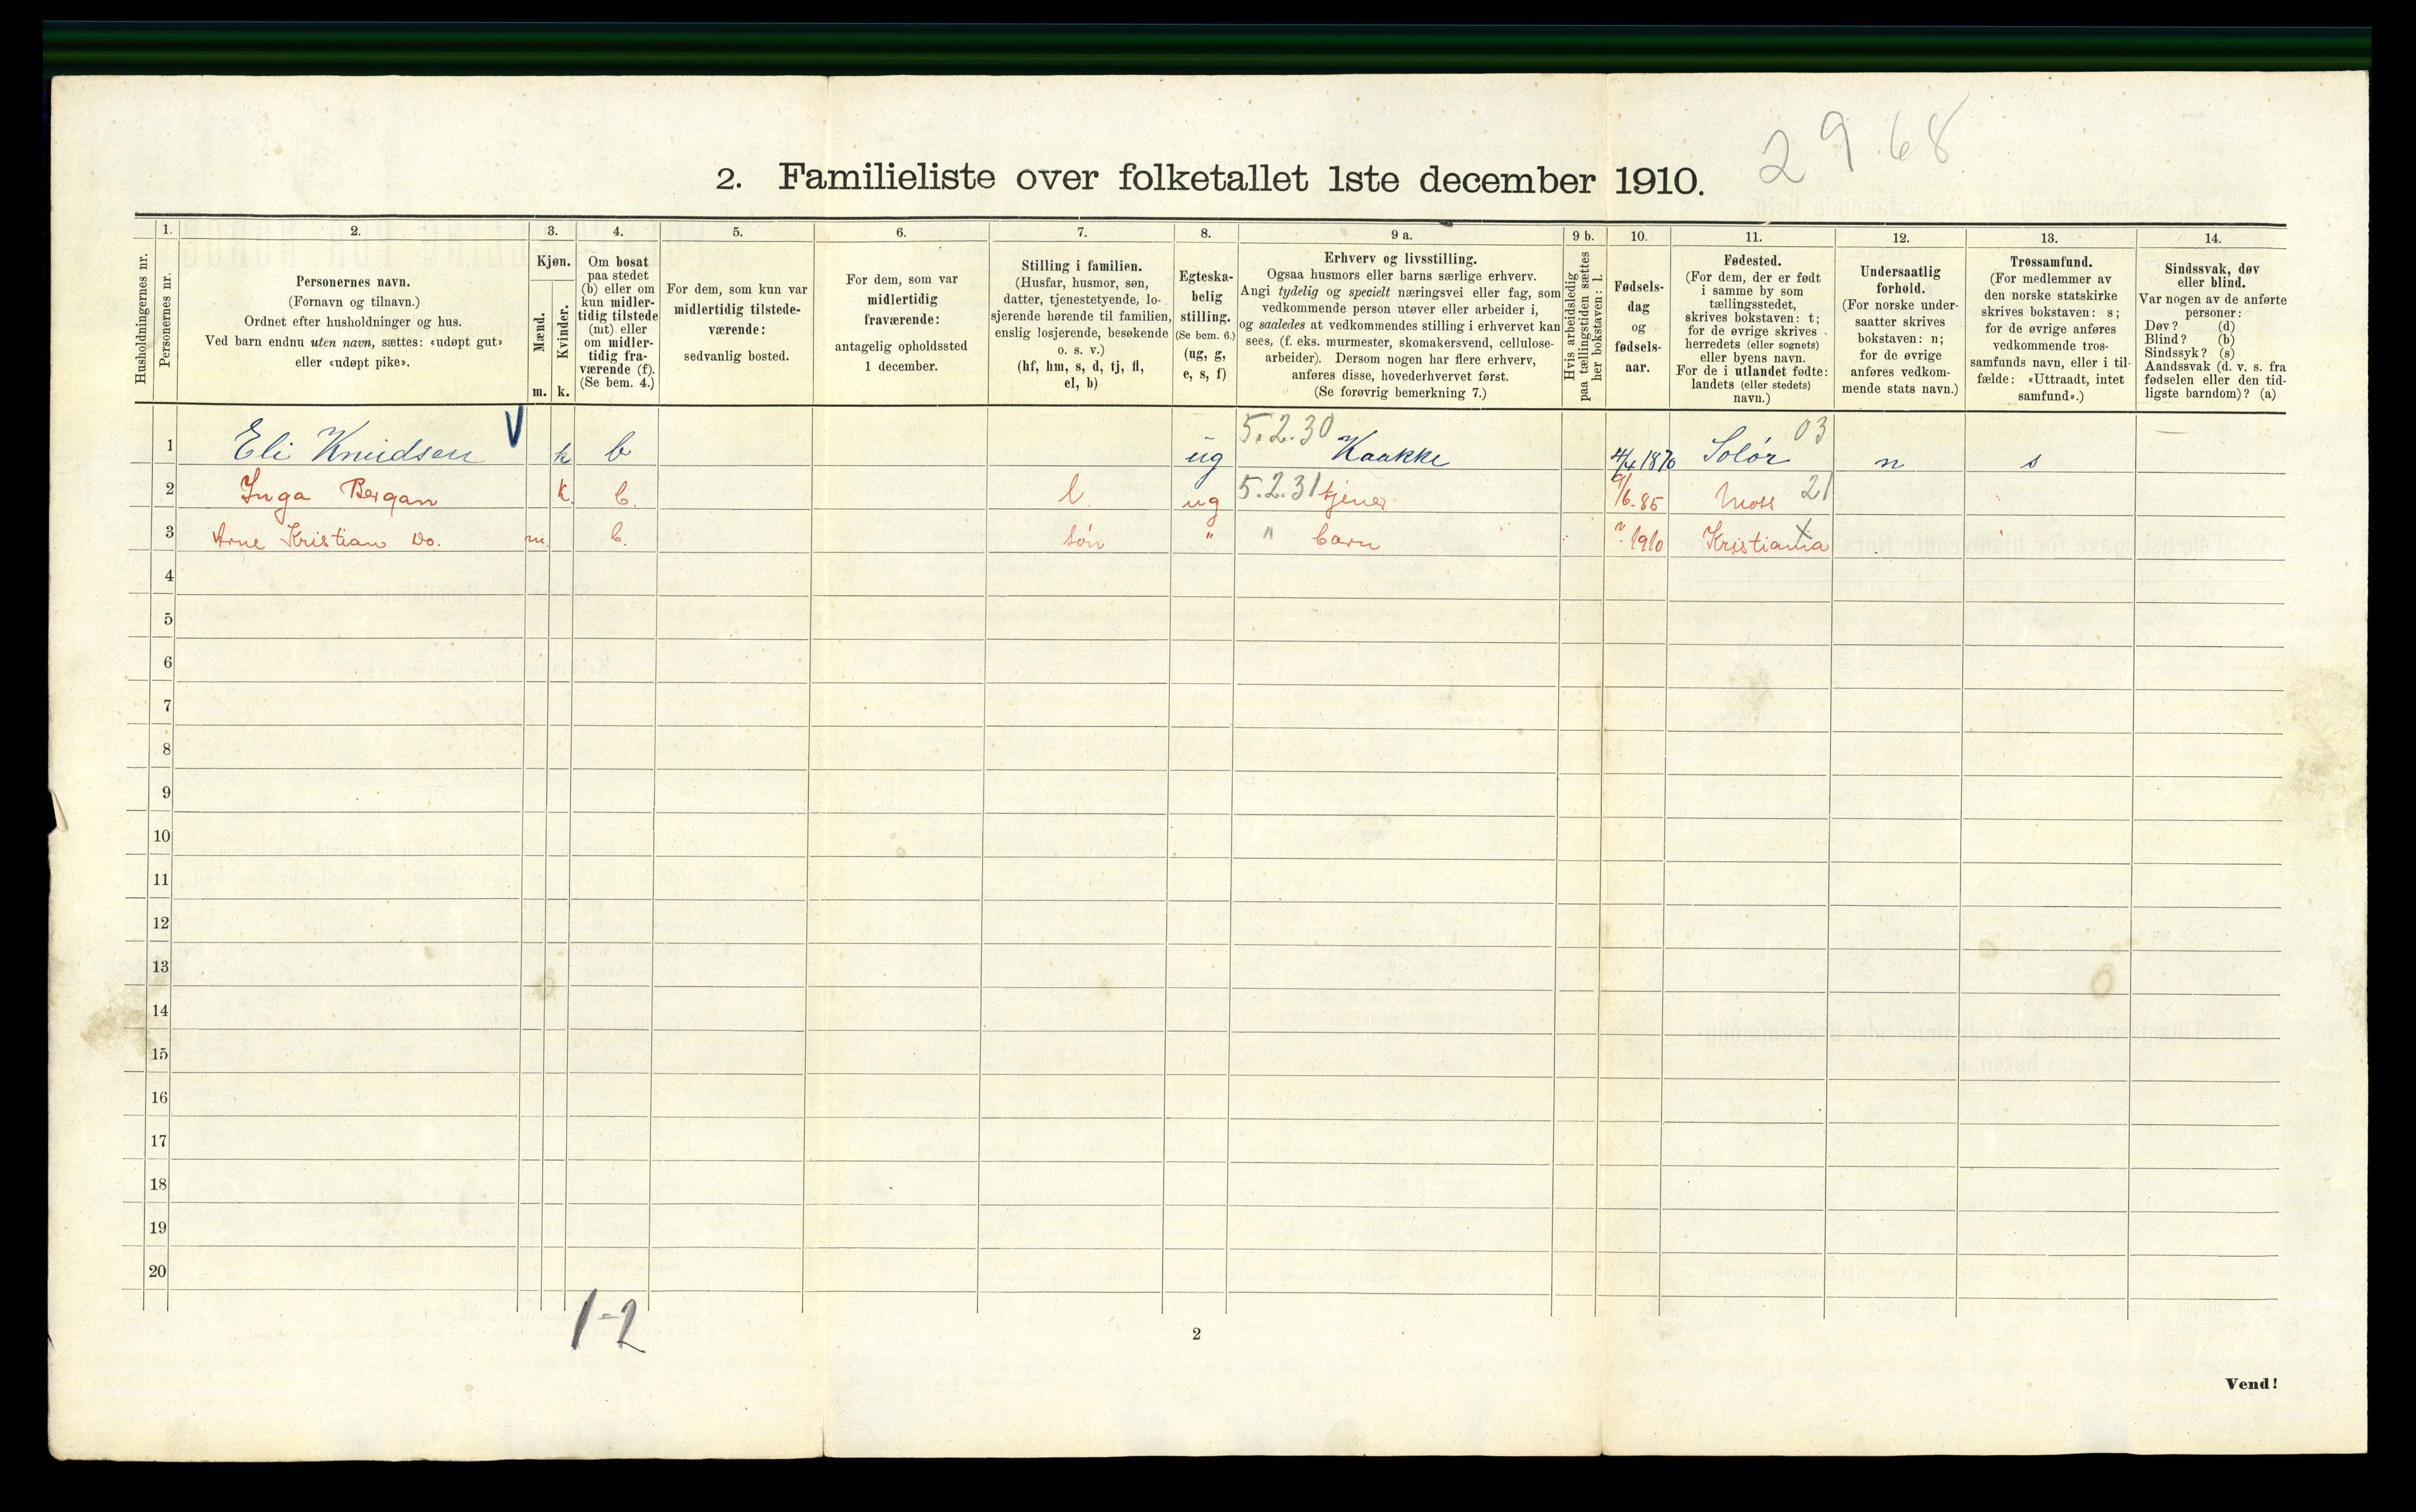 2968
2. Familieliste over folketallet 1ste december 1910.
Husholdningernes nr.
1.
Personernes nr.
2.
Personernes navn.
(Fornavn og tilnavn.)
Ordnet efter husholdninger og hus.
Ved barn endnu uten navn, sættes: «udøpt gut»
eller «udøpt pike».
3.
Kjøn.
Mænd.
Kvinder.
m. k.
4.
Om bosat
paa stedet
(b) eller om
kun midler-
tidig tilstede
(mt) eller
om midler-
tidig fra-
værende (f).
(Se bem. 4.)
5.
For dem, som kun var
midlertidig tilstede-
værende:
sedvanlig bosted.
6.
For dem, som var
midlertidig
fraværende:
antagelig opholdssted
1 december.
7.
Stilling i familien.
(Husfar, husmor, søn,
datter, tjenestetyende, lo-
sjerende hørende til familien,
enslig losjerende, besøkende
o. s. v.)
(hf, hm, s, d, tj, fl,
el, b)
8.
Egteska-
belig
stilling.
(Se bem. 6.)
(ug, g,
e, s, f)
9 a.
Erhverv og livsstilling.
Ogsaa husmors eller barns særlige erhverv.
Angi tydelig og specielt næringsvei eller fag, som
vedkommende person utøver eller arbeider i,
og saaledes at vedkommendes stilling i erhvervet kan
sees, (f. eks. murmester, skomakersvend, cellulose-
arbeider). Dersom nogen har flere erhverv,
anføres disse, hovederhvervet først.
(Se forøvrig bemerkning 7.)
9 b.
Hvis arbeidsledig
paa tællingstiden sættes
her bokstaven: l.
10.
Fødsels-
dag
og
fødsels-
aar.
11.
Fødested.
(For dem, der er født
i samme by som
tællingsstedet,
skrives bokstaven: t;
for de øvrige skrives
herredets (eller sognets)
eller byens navn.
For de i utlandet fødte:
landets (eller stedets)
navn.)
12.
Undersaatlig
forhold.
(For norske under-
saatter skrives
bokstaven: n;
for de øvrige
anføres vedkom-
mende stats navn.)
13.
Trossamfund.
(For medlemmer av
den norske statskirke
skrives bokstaven: s;
for de øvrige anføres
vedkommende tros-
samfunds navn, eller i til-
fælde: «Uttraadt, intet
samfund».)
14.
Sindssvak, døv
eller blind.
Var nogen av de anførte
personer:
Døv? (d)
Blind? (b)
Sindssyk? (s)
Aandssvak (d. v. s. fra
fødselen eller den tid-
ligste barndom)? (a)
1 Eli Knudsen V k b ug 5.2.30 Kaakke 4/4 1870 Solør 03 n s —
2 Inga Bergan k. b. l ug 5.2.31 tjener 9/6.85 Moss 21
3 Arne Kristian Do. m. b. søn " " barn ? 1910 Kristiania X
4
5
6
7
8
9
10
11
12
13
14
15
16
17
18
19
20
1-2
2
Vend!